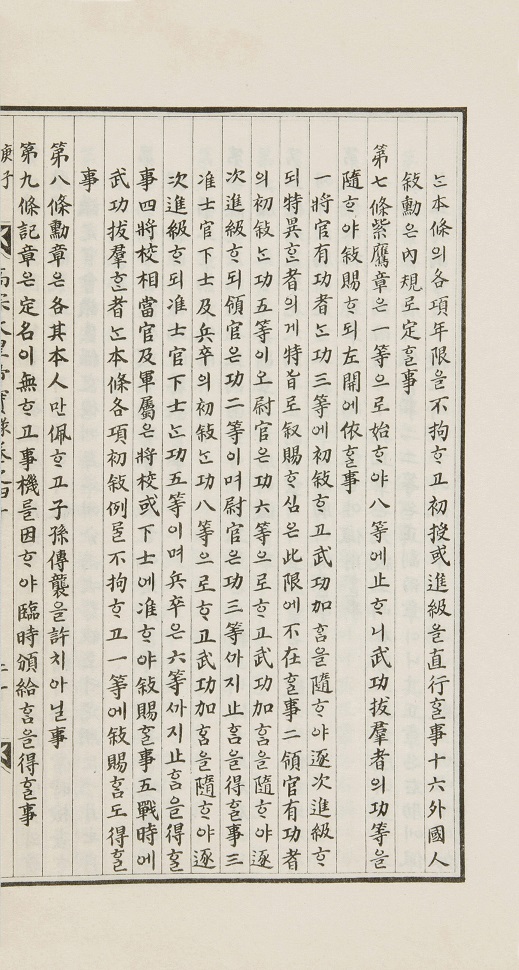 ᄂᆞᆫ本條의各項年限을不拘ᄒᆞ고初授或進級을直行ᄒᆞᆯ事十六外國人
敍勳은內規로定ᄒᆞᆯ事
第七條紫鷹章은一等으로始ᄒᆞ야八等에止ᄒᆞ니武功拔羣者의功等을
隨ᄒᆞ야敍賜ᄒᆞ되左開에依ᄒᆞᆯ事
一將官有功者ᄂᆞᆫ功三等에初敍ᄒᆞ고武功加ᄒᆞᆷ을隨ᄒᆞ야逐次進級ᄒᆞ
되特異ᄒᆞᆫ者의게特旨로叙賜ᄒᆞ심은此限에不在ᄒᆞᆯ事二領官有功者
의初敍ᄂᆞᆫ功五等이오尉官은功六等으로ᄒᆞ고武功加ᄒᆞᆷ을隨ᄒᆞ야逐
次進級ᄒᆞ되領官은功二等이며尉官은功三等ᄭᆞ지止ᄒᆞᆷ을得ᄒᆞᆯ事三
准士官下士及兵卒의初敍ᄂᆞᆫ功八等으로ᄒᆞ고武功加ᄒᆞᆷ을隨ᄒᆞ야逐
次進級ᄒᆞ되准士官下士ᄂᆞᆫ功五等이며兵卒은六等ᄭᆞ지止ᄒᆞᆷ을得ᄒᆞᆯ
事四將校相當官及軍屬은將校或下士에准ᄒᆞ야敍賜ᄒᆞᆯ事五戰時에
武功拔羣ᄒᆞᆫ者ᄂᆞᆫ本條各項初敍例ᄅᆞᆯ不拘ᄒᆞ고一等에敍賜ᄒᆞᆷ도得ᄒᆞᆯ
事
第八條勳章은各其本人만佩ᄒᆞ고子孫傳襲을許치아닐事
第九條記章은定名이無ᄒᆞ고事機를因ᄒᆞ야臨時頒給ᄒᆞᆷ을得ᄒᆞᆯ事